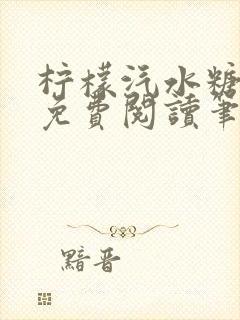 柠檬汽水糖
免費閱讀筆
黯晋